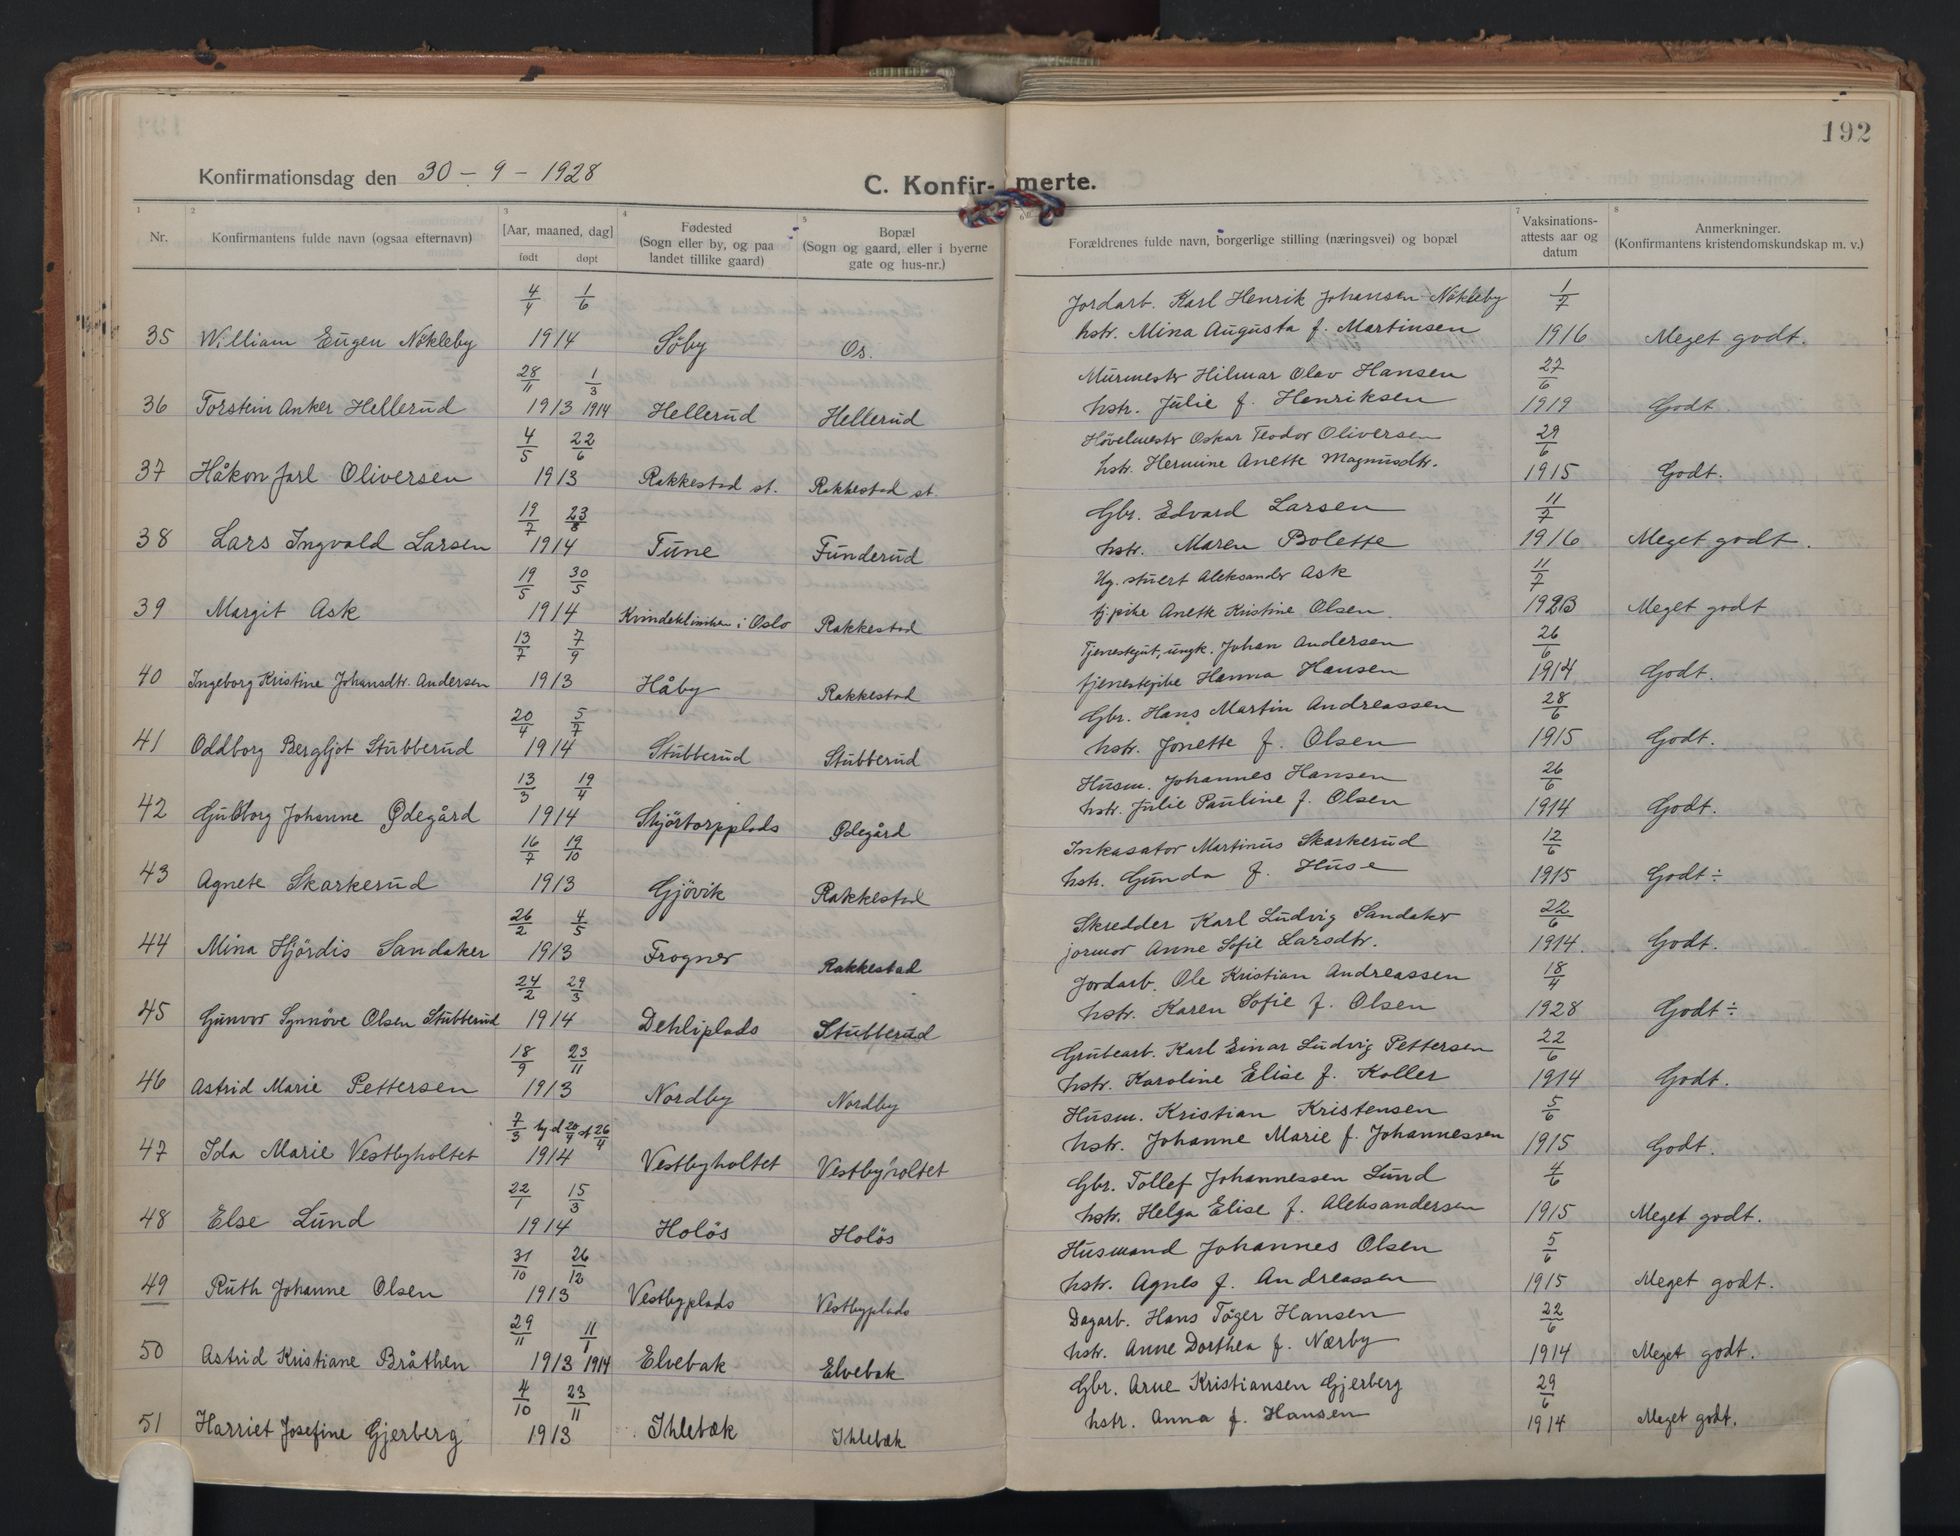 192
Konfirmationsdag den 30 - 9 - 1928
C. Konfirmerte.
1 2 3 4 5 6 7 8
Nr.
Konfirmantens fulde navn (ogsaa efternavn)
[Aar, maaned, dag]
født døpt
Fødested
(Sogn eller by, og paa
landet tillike gaard)
Bopæl
(Sogn og gaard, eller i byerne
gate og hus-nr.)
Forældrenes fulde navn, borgerlige stilling (næringsvei) og bopæl
Vaksinations-
attests aar og
datum
Anmerkninger.
(Konfirmantens kristendomskundskap m. v.)
4/4 1/6 Jordarb. Karl Henrik Johansen Nökleby 1/7
35 William Eugen Nökleby 1914 Söby Os. hstr. Mina Augusta f. Martinsen 1916 Meget godt.
28/11 1/3 Murmester Hilmar Olav Hansen 27/6
36 Torstein Anker Hellerud 1913 1914 Hellerud Hellerud hstr. Julie f. Henriksen 1919 Godt
4/5 22/6 Hövelmester Oskar Teodor Oliversen 29/6
37 Håkon Jarl Oliversen 1913 Rakkestad st. Rakkestad st. hstr. Hermine Anette Magnusdtr. 1915 Godt.
19/7 23/8 Gbr. Edvard Larsen 11/7
38 Lars Ingvald Larsen 1914 Tune Funderud hstr. Maren Bolette 1916 Meget godt.
19/5 30/5 Ug. stuert Aleksander Ask 11/7
39 Margit Ask 1914 Kvindeklinikken i Oslo Rakkestad tj.pike Anette Kristine Olsen 1923 Meget godt
13/7 7/9 Tjenestegut, ungk. Johan Andersen 26/6
40 Ingeborg Kristine Johansdtr. Andersen 1913 Håby Rakkestad tjenestepike Hanna Hansen 1914 Godt.
20/4 5/7 Gbr. Hans Martin Andreassen 28/6
41 Oddborg Bergljot Stubberud 1914 Stubberud Stubberud hstr. Jonette f. Olsen 1915 Godt.
13/3 19/4 Husm. Johannes Hansen 26/6
42 Gudborg Johanne Ødegård 1914 Skjörtorpplads Ødegård hstr. Julie Pauline f. Olsen 1914 Godt.
16/7 19/10 Inkasator Martinus Skarkerud 12/6
43 Agnete Skarkerud 1913 Gjövik Rakkestad hstr. Gunda f. Huse 1915 Godt ÷
26/2 4/5 Skredder Karl Ludvig Sandaker 22/6
44 Mina Hjördis Sandaker 1913 Frogner Rakkestad jormor Anne Sofie Larsdtr. 1914. Godt.
24/2 29/3 Jordarb. Ole Kristian Andreassen 18/4
45 Gunvor Synnöve Olsen Stubberud 1914 Dehliplads Stubberud hstr. Karen Sofie f. Olsen 1928 Godt ÷
18/9 23/11 Grubearb. Karl Einar Ludvig Pettersen 22/6
46 Astrid Marie Pettersen 1913 Nordby Nordby hstr. Karoline Elise f. Koller 1914 Godt.
7/3 hj d 20/4 st 26/4 Husm. Kristian Kristensen 5/6
47 Ida Marie Vestbyholtet 1914 Vestbyholtet Vestbyholtet hstr. Johanne Marie f. Johannessen 1915 Godt.
22/1 15/3 Gbr. Tollef Johannessen Lund 4/6
48 Else Lund 1914 Holös Holös hstr. Helga Elise f. Aleksandersen 1915 Meget godt.
31/10 26/12 Husmand Johannes Olsen 5/6
49 Ruth Johanne Olsen 1913 Vestbyplads Vestbyplads hstr. Agnes f. Andreassen 1915 Meget godt.
29/11 11/1 Dagarb. Hans Töger Hansen 22/6
50 Astrid Kristiane Bråthen 1913 1914 Elvebak Elvebak hstr. Anne Dorthea f. Nærby 1914 Meget godt.
4/10 23/11 Gbr. Arne Kristiansen Gjerberg 29/6
51 Harriet Josefine Gjerberg 1913 Ihlebæk Ihlebæk hstr. Anna f. Hansen 1914 Meget godt.